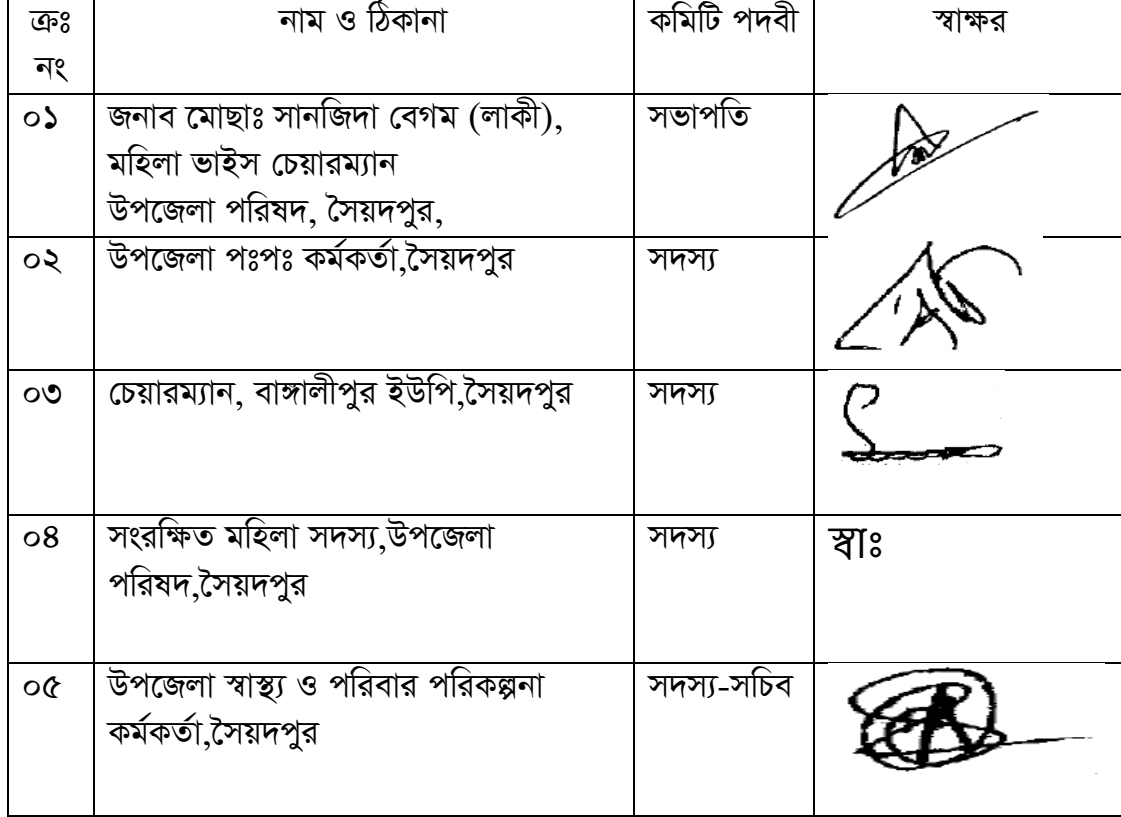 ক্রঃ নাম ও ঠিকানা কমিটি পদবী স্বাক্ষর
নং
০১ জনাব মোছাঃ সানজিদা বেগম (লাকী), সভাপতি
মহিলা ভাইস চেয়ারম্যান
উপজেলা পরিষদ, সৈয়দপুর,
০২ উপজেলা পঃপঃ কর্মকর্তা,সৈয়দপুর সদস্য
০৩ চেয়ারম্যান, বাঙ্গালীপুর ইউপি,সৈয়দপুর সদস্য
০৪ সংরক্ষিত মহিলা সদস্য,উপজেলা সদস্য স্বাঃ
পরিষদ,সৈয়দপুর
০৫ উপজেলা স্বাস্থ্য ও পরিবার পরিকল্পনা সদস্য-সচিব
কর্মকর্তা,সৈয়দপুর